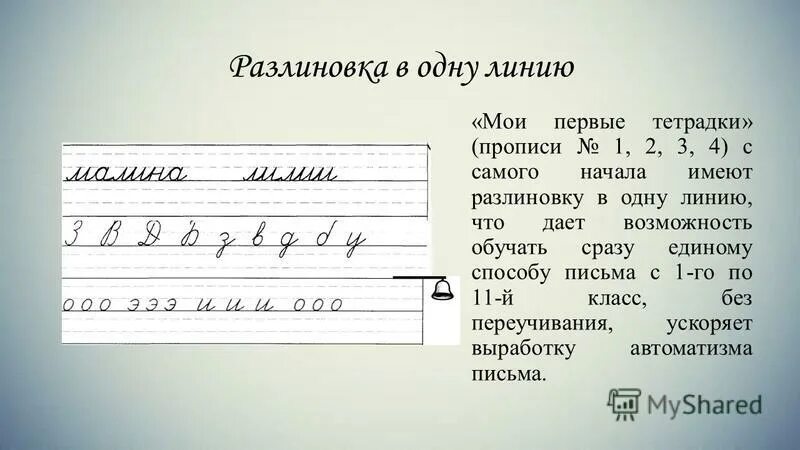 Разлиновка в одну линию
малина лилии
З В Д Б з в д б у
о о о э э э и и и о о о
«Мои первые тетрадки»
(прописи № 1, 2, 3, 4) с
самого начала имеют
разлиновку в одну линию,
что дает возможность
обучать сразу единому
способу письма с 1-го по
11-й класс, без
переучивания, ускоряет
выработку автоматизма
письма.
MyShared